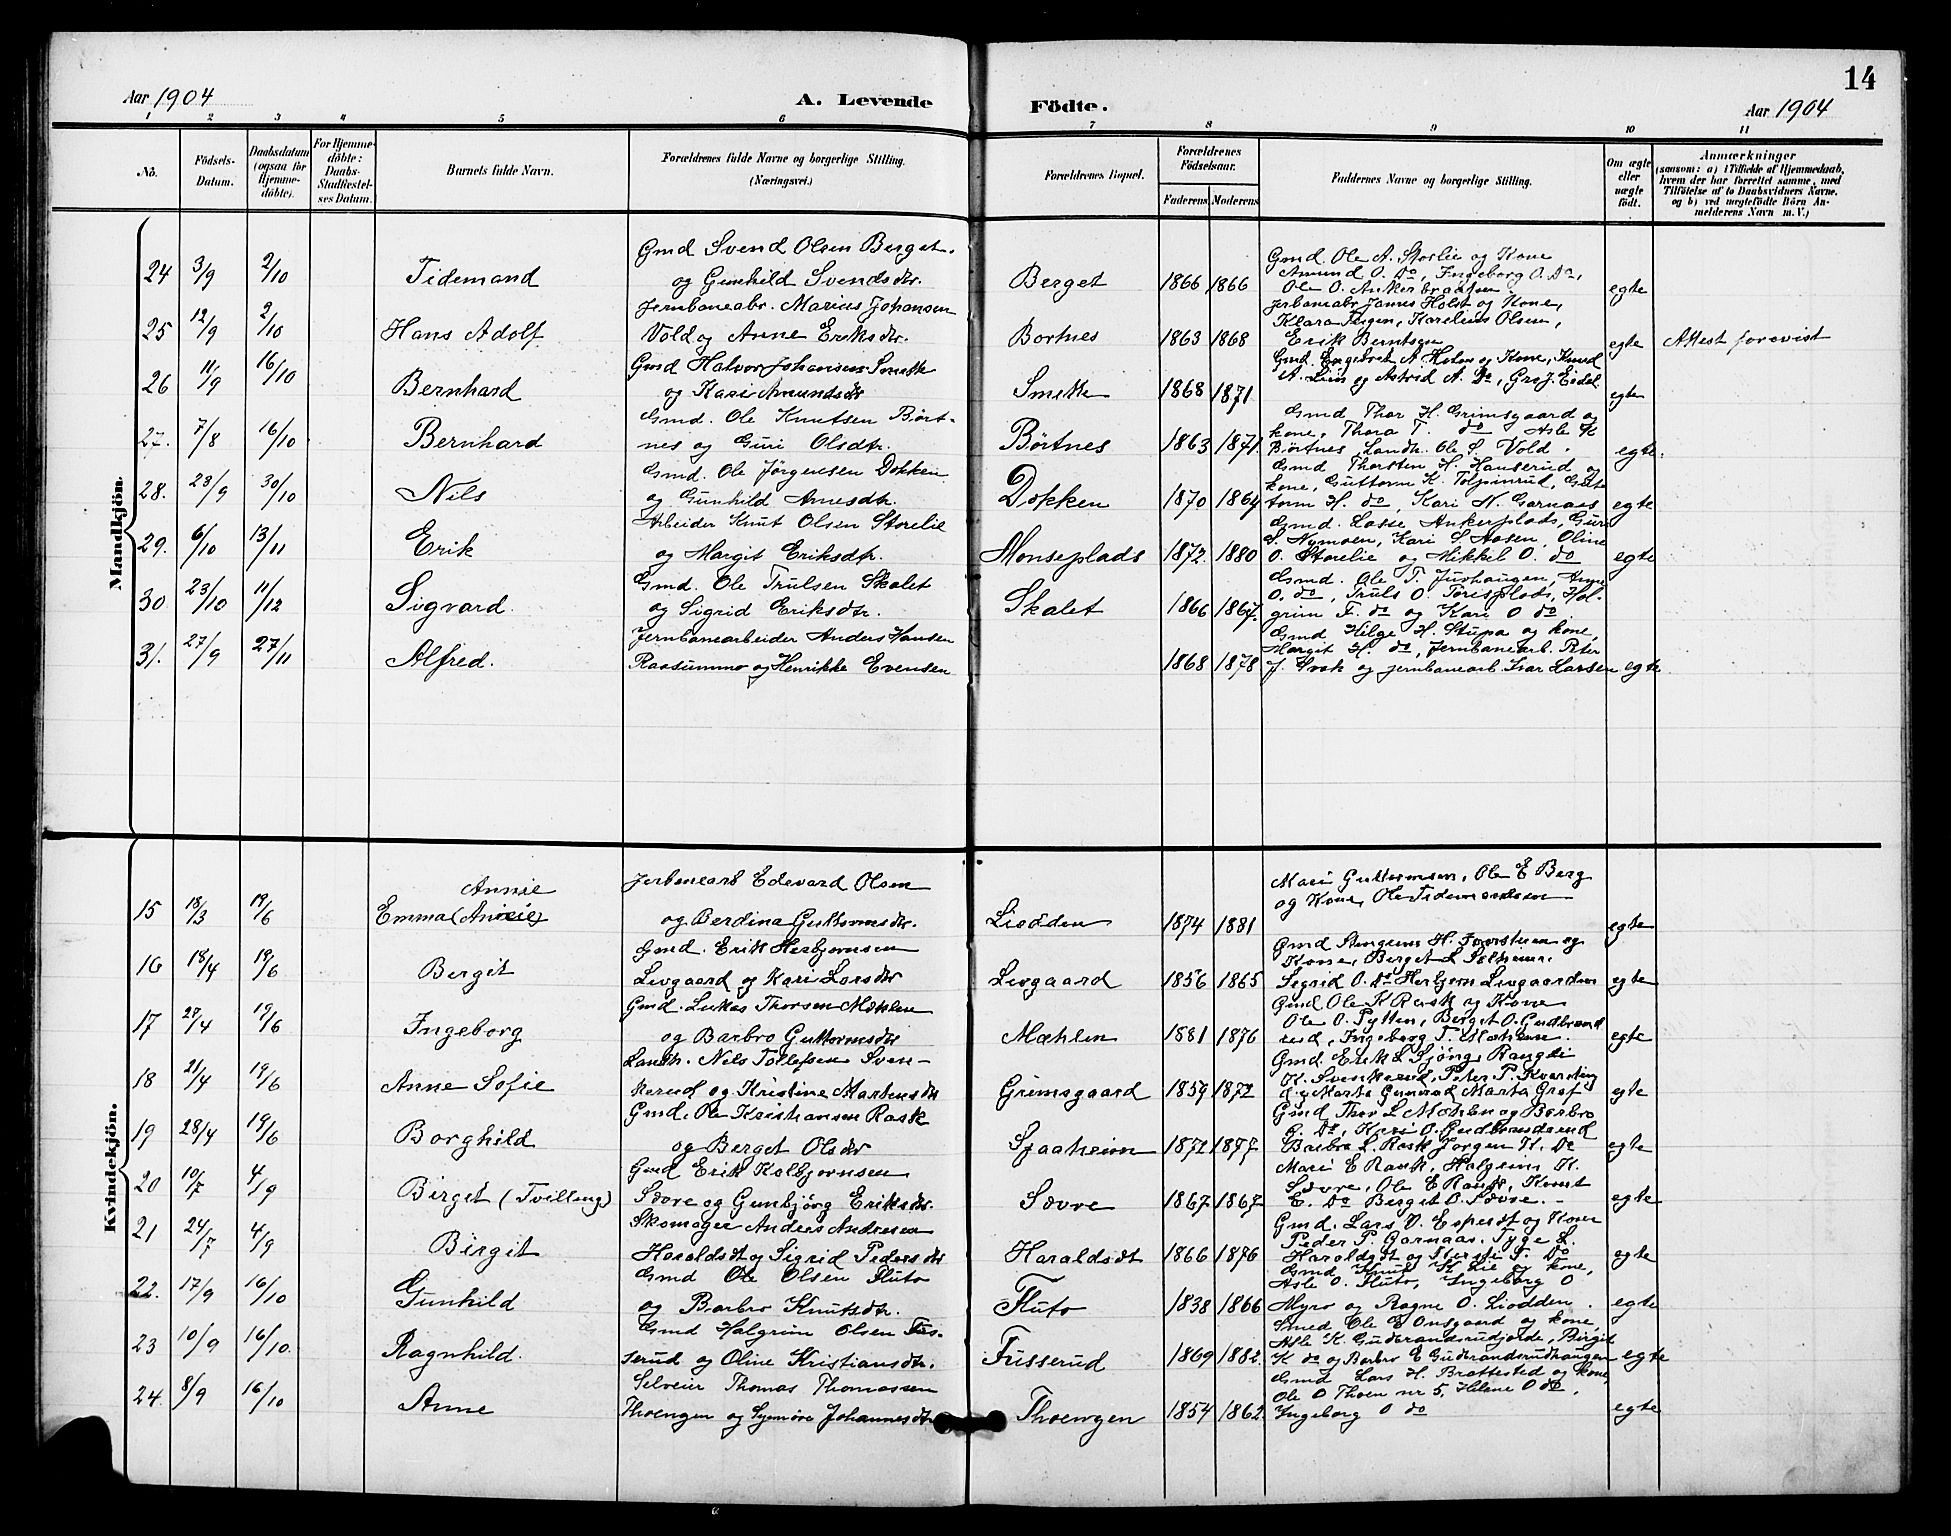 14
Aar 1904
A. Levende Födte.
Aar 1904
1 2 3 4 5 6 7 8 9 10 11
No.
Födsels-Datum.
Daabsdatum (ogsaa for Hjemme-döbte).
For Hjemme-döbte: Daabs-Stadfæstel-ses Datum.
Barnets fulde Navn.
Forældrenes fulde Navne og borgerlige Stilling. (Næringsvei.)
Forældrenes Bopæl.
Forældrenes Födselsaar.
Faderens Moderens
Faddernes Navne og borgerlige Stilling.
Om ægte eller uægte födt.
Anmærkninger
(saasom: a) i Tilfælde af Hjemmedaab,
hvem der har forrettet samme, med
Tilföielse af to Daabsvidners Navne,
og b) ved uægtefödte Börn An-
melderens Navn m. V.)
Mandkjön.
Gmd Svend Olsen Berget
24 3/9 2/10 Tidemand og Gunhild Svendsdtr. Berget 1866 1866 egte
Gmd. Ole A. Storlie og Kone
Amund O. Do, Ingeborg O. Do,
Ole O. Ankerbraaten
Jernbaneabr. Marius Johansen
25 12/9 2/10 Hans Adolf Vold og Anne Eriksdtr. Bortnes 1863 1868 egte Attest forevist
Jerbaneabr James Holst og Kone,
Klara Karelius Olsen,
Erik Berntsen
Gmd Halvor Johansen Smette
26 11/9 16/10 Bernhard og Kari Amundsdtr Smette 1868 1871 egte
Gmd. Engebret A. og Kone, Knud
A. Liin og Astrid A. Do, Gro J. Eidal
Gmd. Ole Knutsen Bört-
27. 7/8 16/10 Bernhard nes og Guri Olsdtr. Börtnes 1863 1871. egte.
Gmd Thor H. Grimsgaard og
kone, Thora T. do Asle K
Börtnes Landh. Ole S. Vold
Gmd. Ole Jörgensen Dokken
28. 23/9 30/10 Nils og Gunhild Arnesdtr. Dokken 1870 1864 egte
Gmd Thorsten H. Hanserud og
kone, Guttorm K. Tolpinrud, Gut-
torm H. do, Kari N. Garnaas
Arbeider Knut Olsen Storelie
29. 6/10 13/11 Erik og Margit Eriksdtr. Monseplads 1872. 1880 egte
Gmd. Lasse Ankerplads, Guri
S. Nymoen, Kari S Aasen, Oline
O. Storelie og Mikkil O. do
Gmd. Ole Trulsen Skalet
30 23/10 11/12 Sigvard. og Sigrid Eriksdtr. Skalet 1866 1867. egte
Gmd. Ole T. Juvhaugen, Anne
O. do, Truls O. Torisplads, Hol-
grim F. do og Kari O do
Jernbanearbeider Anders Hansen
31. 27/9 27/11 Alfred. Raasummo og Henrikke Evensen 1868 1878 egte
Gmd Helge H. Stupa og kone,
Margit H. do, Jernbanearb. Peter
J. Svak og jernbanearb. Ivar Larsen
Kvindekjön.
Annie
Jerbenearb Edevard Olsen
15 18/3 19/6 Emma (Annie) og Berdina Guttormsdtr. Liodden 1874 1881 egte
Mari Guttormsen, Ole E Berg
og Kone, Ole Tidemandsen
Gmd. Erik Herbjornsen
16 18/4 19/6 Bergit Levgaard og Kari Larsdtr Levgaard 1856 1865 egte
Gmd H. og
Kone, Berget L
Sigrid O. Do Herbjorn Levgaarden
Gmd. Lukas Thorsen Mæhlen
17 27/4 19/6 Ingeborg og Barbro Guttormsdtr Mæhlen 1881 1876 egte
Gmd Ole K Rask og Kone
Ole O. Pytten, Berget O. Gudbrand
rud, Ingeborg T. Mæhlen.
Landh. Nils Tollefsen Sven-
18 21/4 19/6 Anne Sofie kerud og Kristine Martensdtr Grimsgaard 1859 1872 egte
Gmd. Erik L Rangdi
K. Svenkerud, Peter P.
og Marta Marta Graf
Gmd. Ole Kristiansen Rask
19 28/4 19/6 Borghild og Berget Olsdtr Sjaaheim 1871 1877 egte
Gmd Thor L Mæhlen og Barbro
G. Do, Kari O. Gudbrandsrud
Barbro L. Rask Jorgen K. Do
Gmd Erik Kolbjornsen
20 10/7 4/9 Birget (Tvilling) Sævre og Gunbjörg Eriksdtr. Sævre 1867 1867 egte
Mari E Rask, Holgeim K.
Sævre, Ole E Knut
E. Do Berget O. Sævre.
Skomager Anders Andresen
21 24/7 4/9 Birgit Haraldsdt og Sigrid Pedersdtr Haraldsdt 1866 1876 egte
Gmd. Lars O. Espesdt og Kone
Peder P. Garnaas. Tyge L.
Haraldsdt og T. Do
Gmd Ole Olsen Fluto
22. 17/9 16/10 Gunhild og Barbro Knutsdtr. Fluto 1838 1866 egte
Gmd Knut K. Lie og kone,
Asle O. Fluto, Ingeborg O
Myro og Ragne O. Liodden.
Gmd Halgrim Olsen Fus-
23 10/9 16/10. Ragnhild. serud og Oline Kristiansdtr. Fusserud 1869 1882. egte
Smed Ole E Onsgaard og kone,
Asle K. Gudbrandsrudjorde, Birgit
K do og Barbro E Gudbrandsrudhaugen
Selveier Thomas Thomassen
24. 8/9 16/10 Anne Thoengen og Synnöve Johannesdtr Thoengen 1854 1862. egte
Gmd Lars H. Brattested og kone,
Ole O Thoen nr 5, Helene O do,
Ingeborg O do